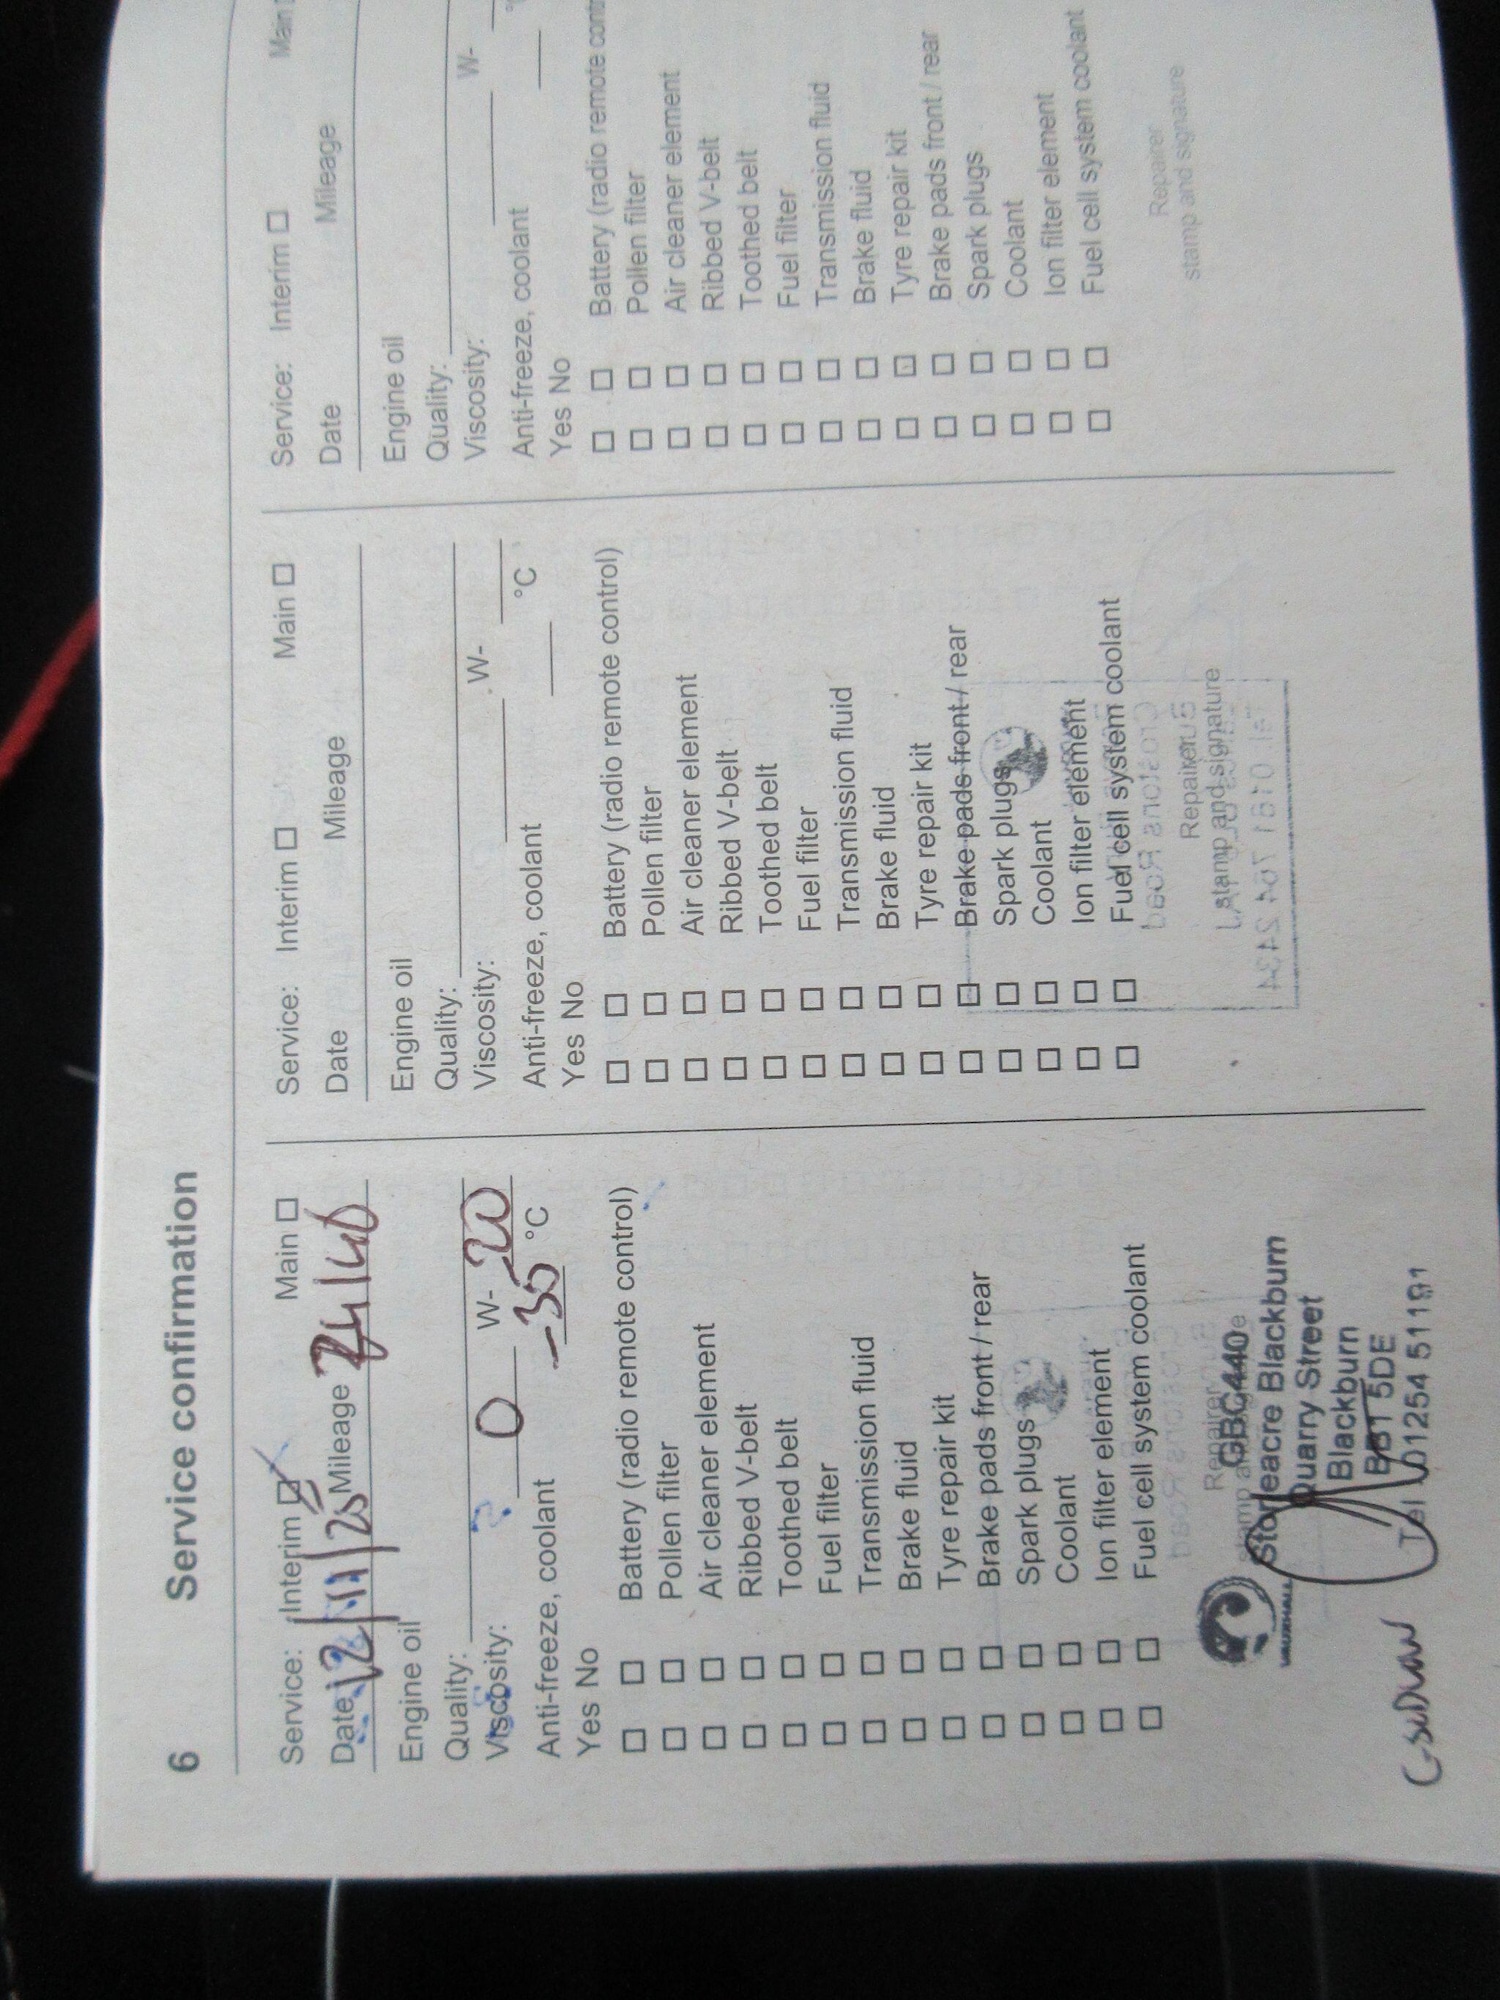 6 Service confirmation
Service: Interim Main
Date 12/11/25 Mileage
Engine oil
Quality:
Viscosity: 0 W- 20
Anti-freeze, coolant -30 °C
Yes No
Battery (radio remote control)
Pollen filter
Air cleaner element
Ribbed V-belt
Toothed belt
Fuel filter
Transmission fluid
Brake fluid
Tyre repair kit
Brake pads front / rear
Spark plugs
Coolant
Ion filter element
Fuel cell system coolant
Repairer
stamp and signature
GBC440
Stoneacre Blackburn
Quarry Street
Blackburn
BB1 5DE
Tel 01254 51191
VAUXHALL
Service: Interim Main
Date Mileage
Engine oil
Quality:
Viscosity: W-
Anti-freeze, coolant °C
Yes No
Battery (radio remote control)
Pollen filter
Air cleaner element
Ribbed V-belt
Toothed belt
Fuel filter
Transmission fluid
Brake fluid
Tyre repair kit
Brake pads front / rear
Spark plugs
Coolant
Ion filter element
Fuel cell system coolant
Repairer
stamp and signature
Service: Interim Main
Date Mileage
Engine oil
Quality:
Viscosity: W-
Anti-freeze, coolant
Yes No
Battery (radio remote
Pollen filter
Air cleaner element
Ribbed V-belt
Toothed belt
Fuel filter
Transmission fluid
Brake fluid
Tyre repair kit
Brake pads front / rear
Spark plugs
Coolant
Ion filter element
Fuel cell system coolant
Repairer
stamp and signature